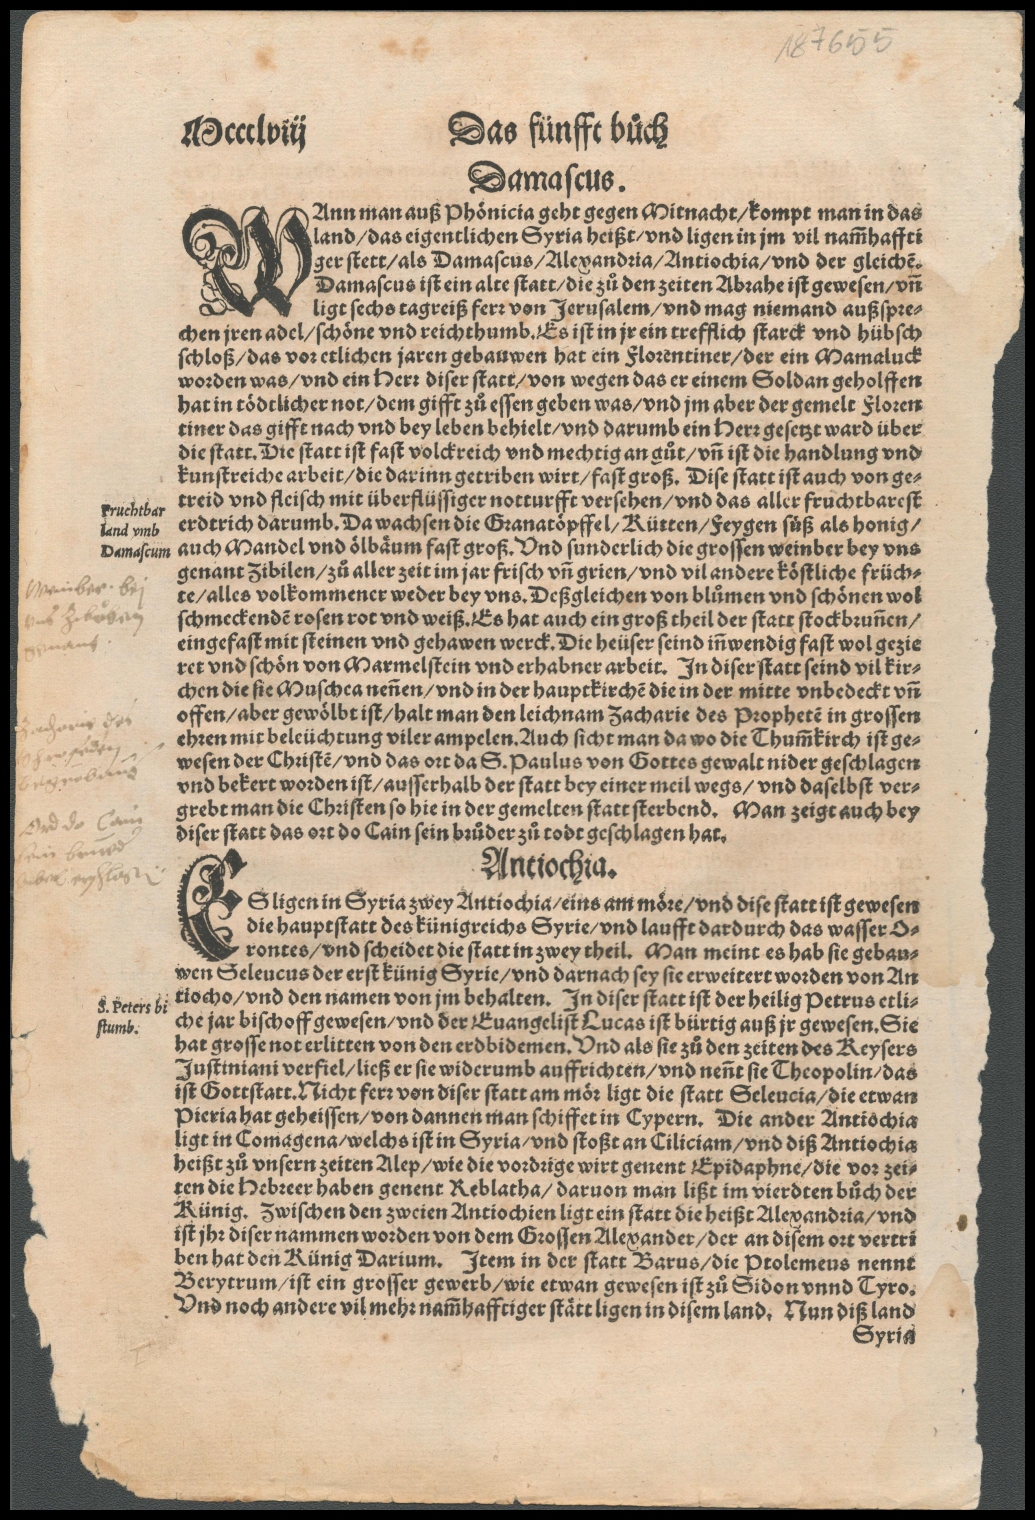 187655
Mccclviij
Das fünfft bůch
Damascus.
WAnn man auß Phönicia geht gegen Mitnacht/kompt man in das
land/das eigentlichen Syria heißt/vnd ligen in jm vil nam̃haffti
ger stett/als Damascus/Alexandria/Antiochia/vnd der gleichẽ.
Damascus ist ein alte statt/die zů den zeiten Abrahe ist gewesen/vñ
ligt sechs tagreiß ferr von Jerusalem/vnd mag niemand außspre⸗
chen jren adel/schöne vnd reichthumb. Es ist in jr ein trefflich starck vnd hübsch
schloß/das vor etlichen jaren gebauwen hat ein Florentiner/der ein Mamaluck
worden was/vnd ein Herr diser statt/von wegen das er einem Soldan geholffen
hat in tödtlicher not/dem gifft zů essen geben was/vnd jm aber der gemelt Floren
tiner das gifft nach vnd bey leben behielt/vnd darumb ein Herr gesetzt ward über
die statt. Die statt ist fast volckreich vnd mechtig an gůt/vñ ist die handlung vnd
kunstreiche arbeit/die darinn getriben wirt/fast groß. Dise statt ist auch von ge⸗
treid vnd fleisch mit überflüssiger notturfft versehen/vnd das aller fruchtbarest
erdtrich darumb. Da wachsen die Granatöpffel/Kütten/Feygen sůß als honig/
auch Mandel vnd ölbäum fast groß. Vnd sunderlich die grossen weinber bey vns
genant Zibilen/zů aller zeit im jar frisch vñ grien/vnd vil andere köstliche früch⸗
te/alles volkommener weder bey vns. Deßgleichen von blůmen vnd schönen wol
schmeckendẽ rosen rot vnd weiß. Es hat auch ein groß theil der statt stockbruñen/
eingefast mit steinen vnd gehawen werck. Die heüser seind iñwendig fast wol gezie
ret vnd schön von Marmelstein vnd erhabner arbeit. In diser statt seind vil kir⸗
chen die sie Muschea neñen/vnd in der hauptkirchẽ die in der mitte vnbedeckt vñ
offen/aber gewölbt ist/halt man den leichnam Zacharie des Prophetẽ in grossen
ehren mit beleüchtung viler ampelen. Auch sicht man da wo die Thum̃kirch ist ge⸗
wesen der Christẽ/vnd das ort da S. Paulus von Gottes gewalt nider geschlagen
vnd bekert worden ist/ausserhalb der statt bey einer meil wegs/ vnd daselbst ver⸗
grebt man die Christen so hie in der gemelten statt sterbend. Man zeigt auch bey
diser statt das ort do Cain sein brůder zů todt geschlagen hat.
Fruchtbar
land vmb
Damascum
Antiochia.
ES ligen in Syria zwey Antiochia/eins am möre/vnd dise statt ist gewesen
die hauptstatt des künigreichs Syrie/vnd laufft dardurch das wasser O⸗
rontes/vnd scheidet die statt in zwey theil. Man meint es hab sie gebau⸗
wen Seleucus der erst künig Syrie/vnd darnach sey sie erweitert worden von An
tiocho/vnd den namen von jm behalten. In diser statt ist der heilig Petrus etli⸗
che jar bischoff gewesen/vnd der Euangelist Lucas ist bürtig auß jr gewesen. Sie
hat grosse not erlitten von den erdbidemen. Vnd als sie zů den zeiten des Keysers
Justiniani verfiel/ließ er sie widerumb auffrichten/vnd neñt sie Theopolin/das
ist Gottstatt. Nicht ferr von diser statt am mör ligt die statt Seleucia/die etwan
Pieria hat geheissen/von dannen man schiffet in Cypern. Die ander Antiochia
ligt in Comagena/welchs ist in Syria/vnd stoßt an Ciliciam/vnd diß Antiochia
heißt zů vnsern zeiten Alep/wie die vordrige wirt genent Epidaphne/die vor zei⸗
ten die Hebreer haben genent Reblatha/ daruon man lißt im vierdten bůch der
Künig. Zwischen den zweien Antiochien ligt ein statt die heißt Alexandria/vnd
ist jhr diser nammen worden von dem Grossen Alexander/der an disem ort vertri
ben hat den Künig Darium. Item in der statt Barus/die Ptolemeus nennt
Berytrum/ist ein grosser gewerb/wie etwan gewesen ist zů Sidon vnnd Tyro.
Vnd noch andere vil mehr nam̃hafftiger stätt ligen in disem land. Nun diß land
Syria
S. Peters bi
stumb.